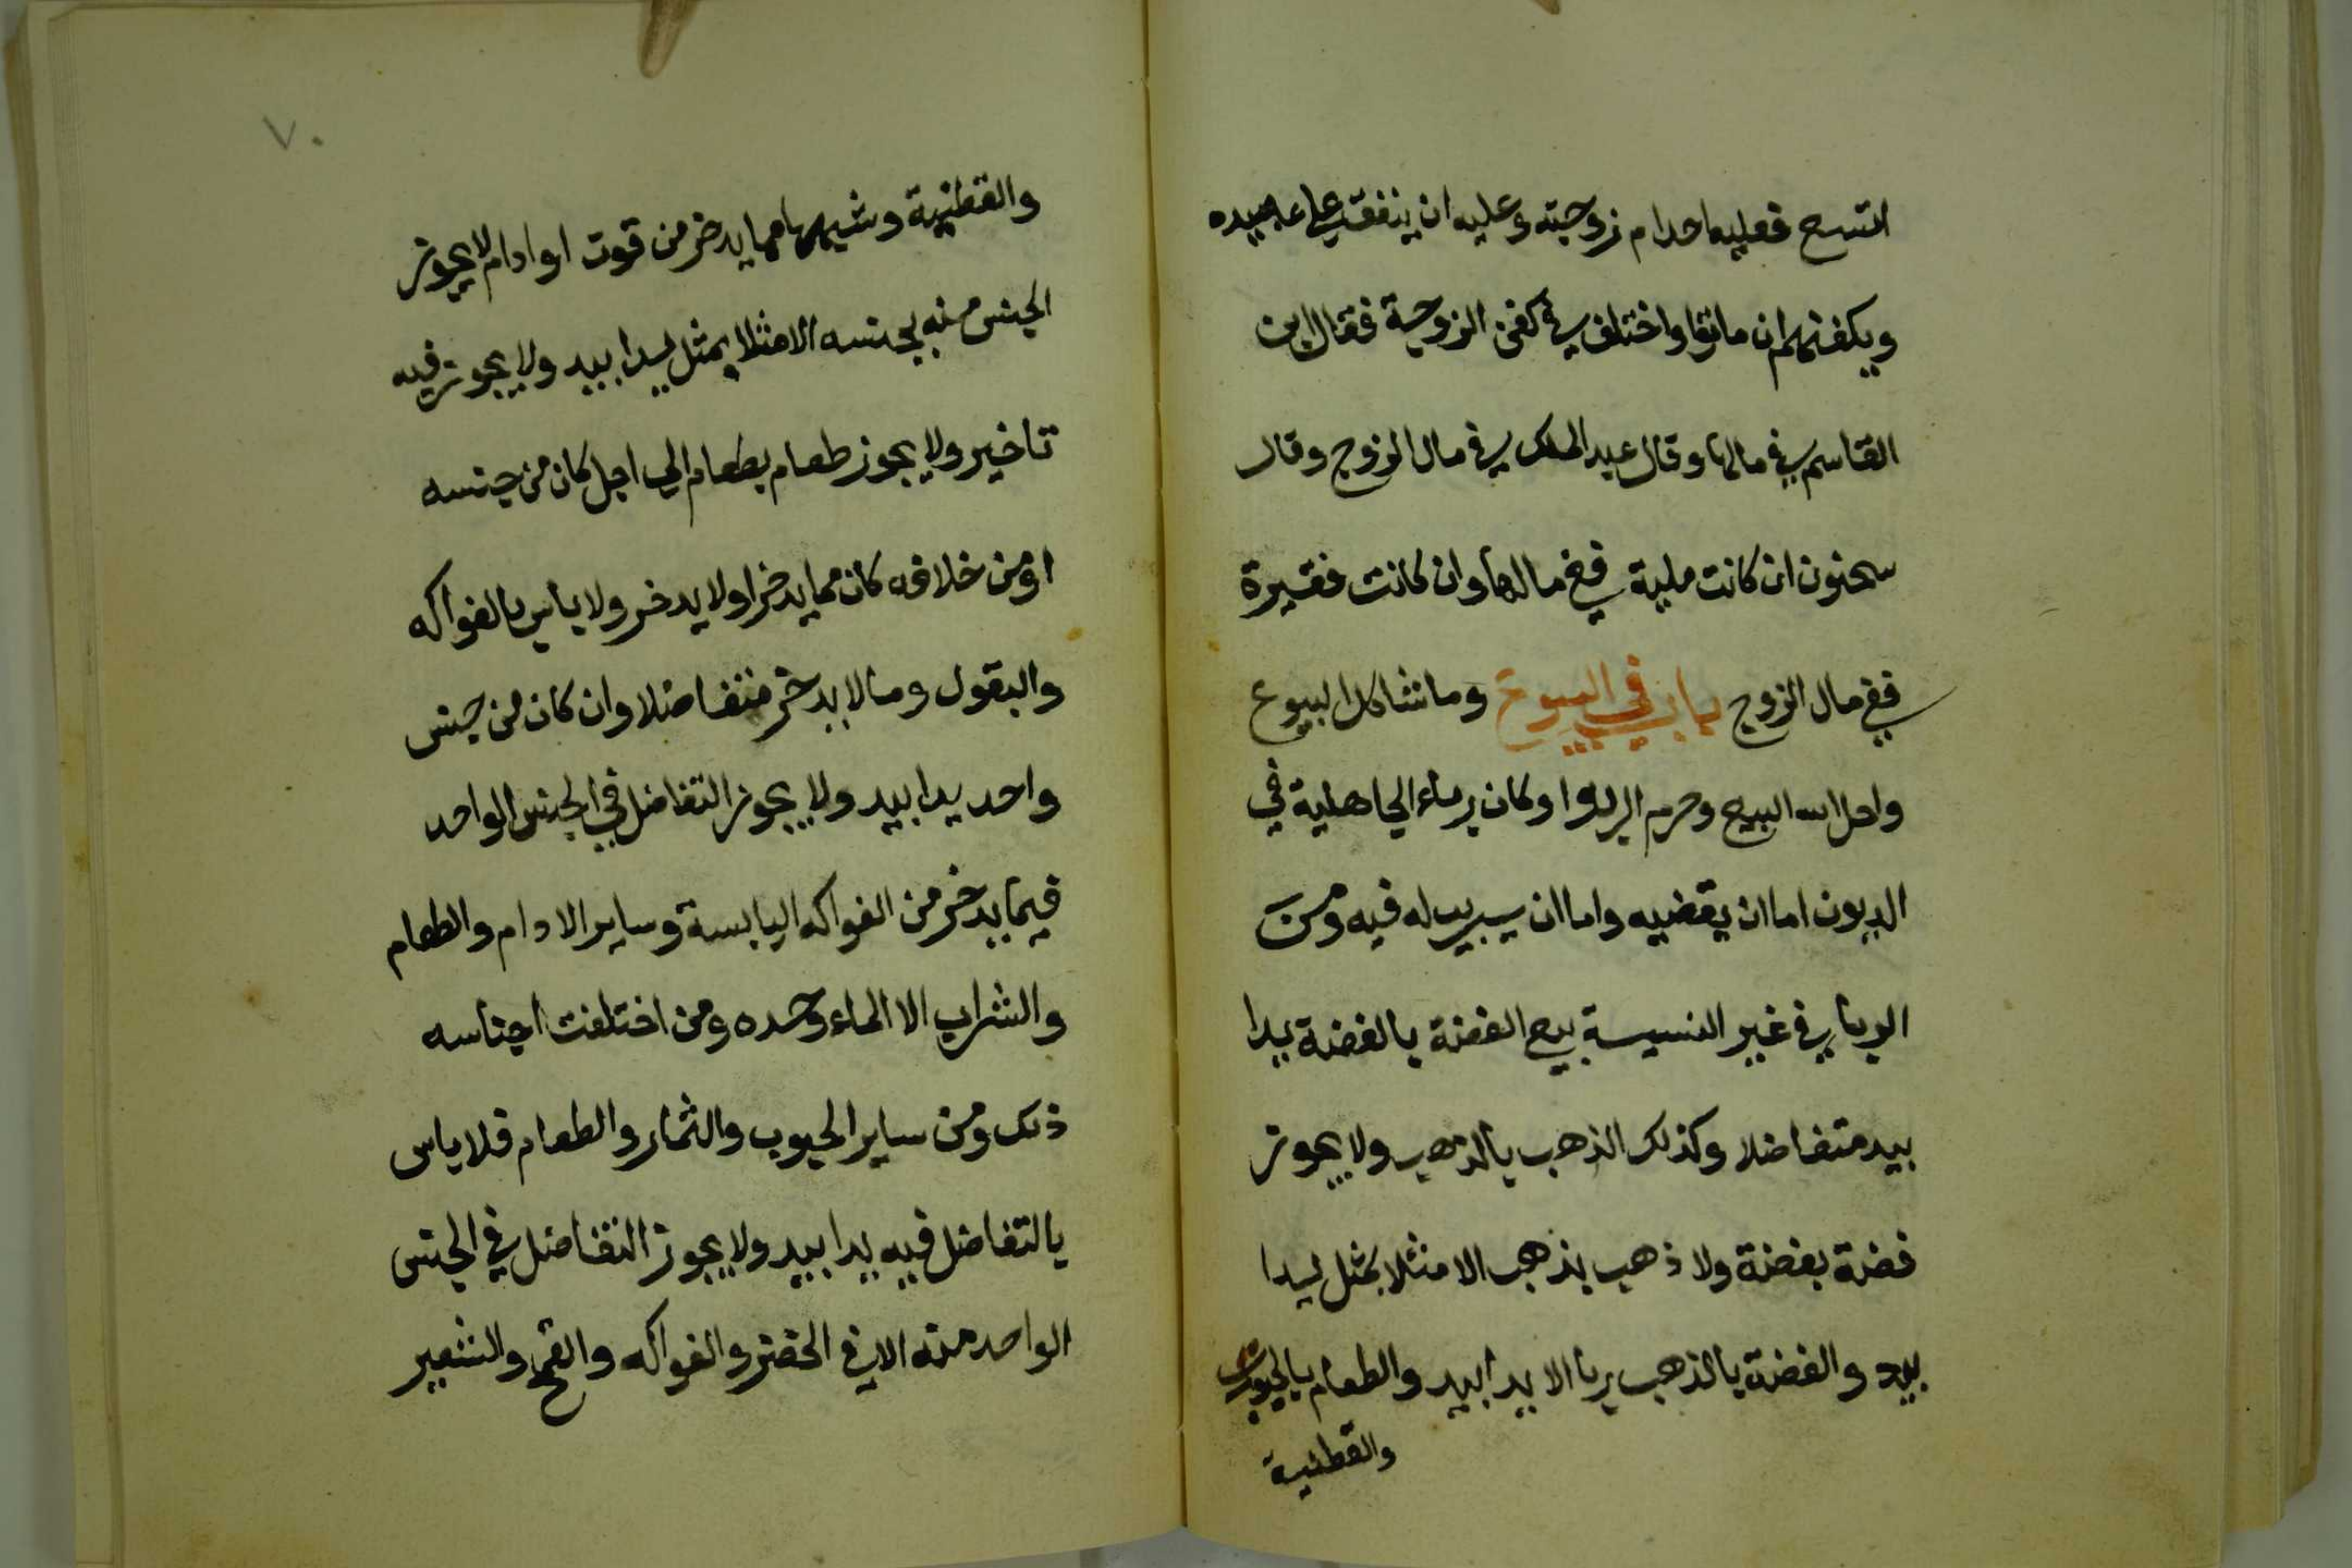 اتسع فعليه اخدام زوجته وعليه ان ينفق على عبيده
ويكفنهم ان ماتوا واختلف في كفن الزوجة فقال ابن
القاسم في مالها وقال عبد الملك في مال الزوج وقال
سحنون ان كانت ملية ففي مالها وان كانت فقيرة
ففي مال الزوج باب في البيوع وما شاكل البيوع
واحل الله البيع وحرم الربوا وكان رباء الجاهلية في
الديون اما ان يقضيه واما ان يربي له فيه ومن
الربا في غير النسيسة بيع الفضة بالفضة يدا
بيد متفاضلا وكذلك الذهب بالذهب ولا يجوز
فضة بفضة ولا ذهب بذهب الا مثلا بمثل يدا
بيد والفضة بالذهب ربا الا يدا بيد والطعام بالحبوب
والقطنية
٧٠
والقطنية وشبهها مما يدخر من قوت او ادام لا يجوز
الجنس منه بجنسه الا مثلا بمثل يدا بيد ولا يجوز فيه
تاخير ولا يجوز طعام بطعام الي اجل كان من جنسه
او من خلافه كان مما يدخر او لا يدخر ولا باس بالفواكه
والبقول وما لا يدخر متفاضلا وان كان من جنس
واحد يدا بيد ولا يجوز التفاضل في الجنس الواحد
فيما يدخر من الفواكه اليابسة وساير الادام والطعام
والشراب الا الماء وحده ومن اختلفت اجناسه
ذلك ومن ساير الحبوب والثمار والطعام فلا باس
بالتفاضل فيه يدا بيد ولا يجوز التفاضل في الجنس
الواحد منه الا في الخضر والفواكه والقمح والشعير